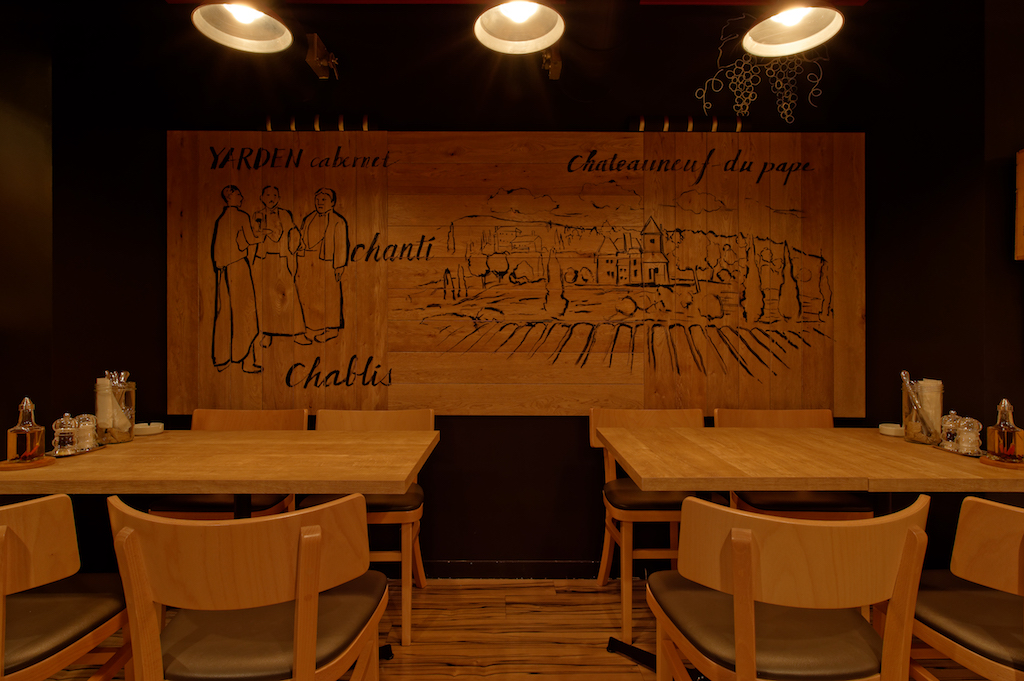 YARDEN cabernet
Chateauneuf-du pape
chanti
Chablis